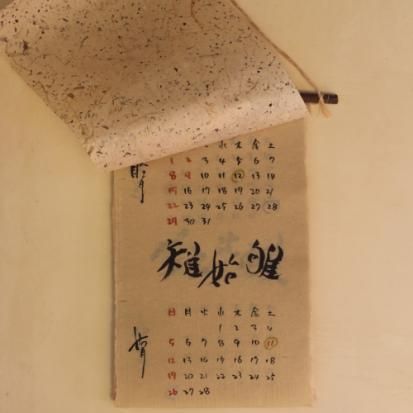 水 木 金 土
1 2 3 4 5 6 7
8 9 10 11 12 13 14
15 16 17 18 19 20 21
22 23 24 25 26 27 28
29 30 31
雉始雊
日 月 火 水 木 金 土
1 2 3 4
5 6 7 8 9 10 11
12 13 14 15 16 17 18
19 20 21 22 23 24 25
26 27 28